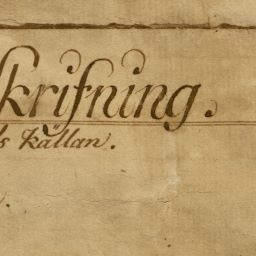 skrifning.
s Källan.